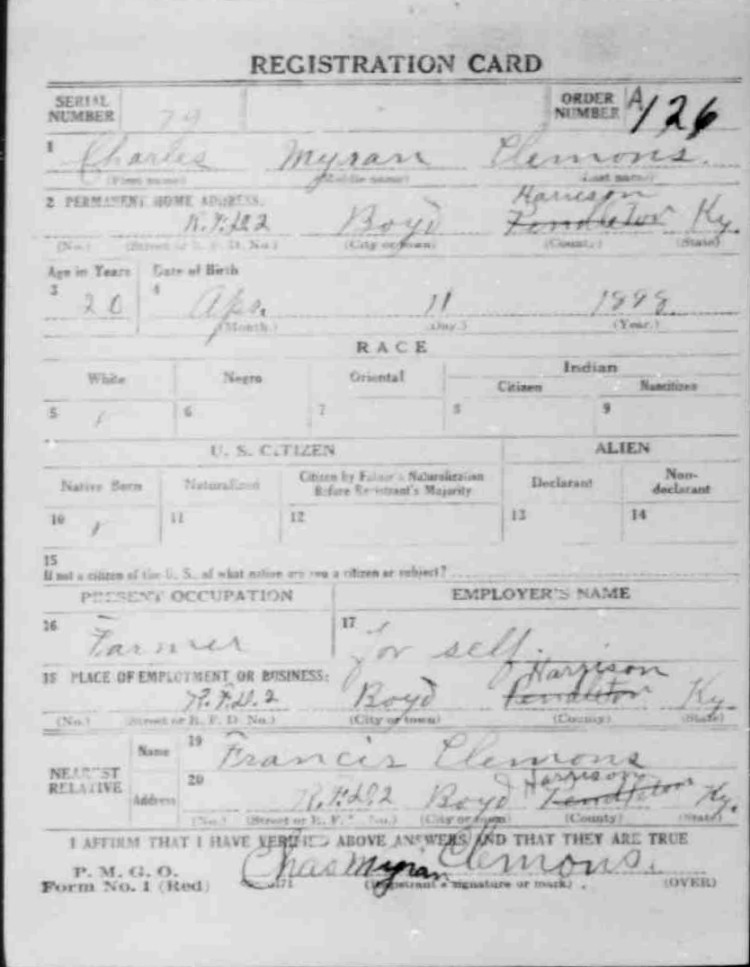 REGISTRATION CARD
SERIAL NUMBER 79 ORDER NUMBER A 126
1 Charles Myran Clemons.
(First name) (Middle name) (Last name)
2 PERMANENT HOME ADDRESS:
Harrison
R.F.D.2 Boyd Pendleton Ky.
(No.) (Street or R. F. D. No.) (City or town) (County) (State)
Age in Years Date of Birth
3 20 4 Apr. 11 1898
(Month.) (Day.) (Year.)
RACE
White Negro Oriental Indian
Citizen Noncitizen
5 / 6 7 8 9
U. S. CITIZEN ALIEN
Native Born Naturalized Citizen by Father's Naturalization Before Registrant's Majority Declarant Non-declarant
10 / 11 12 13 14
15
If not a citizen of the U. S., of what nation are you a citizen or subject?
PRESENT OCCUPATION EMPLOYER'S NAME
16 Farmer 17 for self.
18 PLACE OF EMPLOYMENT OR BUSINESS:
Harrison
R.F.D.2 Boyd Pendleton Ky.
(No.) (Street or R. F. D. No.) (City or town) (County) (State)
NEAREST RELATIVE
Name 19 Francis Clemons
Harrison
Address 20 R.F.D.2 Boyd Pendleton Ky.
(No.) (Street or R. F. D. No.) (City or town) (County) (State)
I AFFIRM THAT I HAVE VERIFIED ABOVE ANSWERS AND THAT THEY ARE TRUE
P. M. G. O.
Form No. 1 (Red) Chas Myran Clemons.
(Registrant's signature or mark) (OVER)